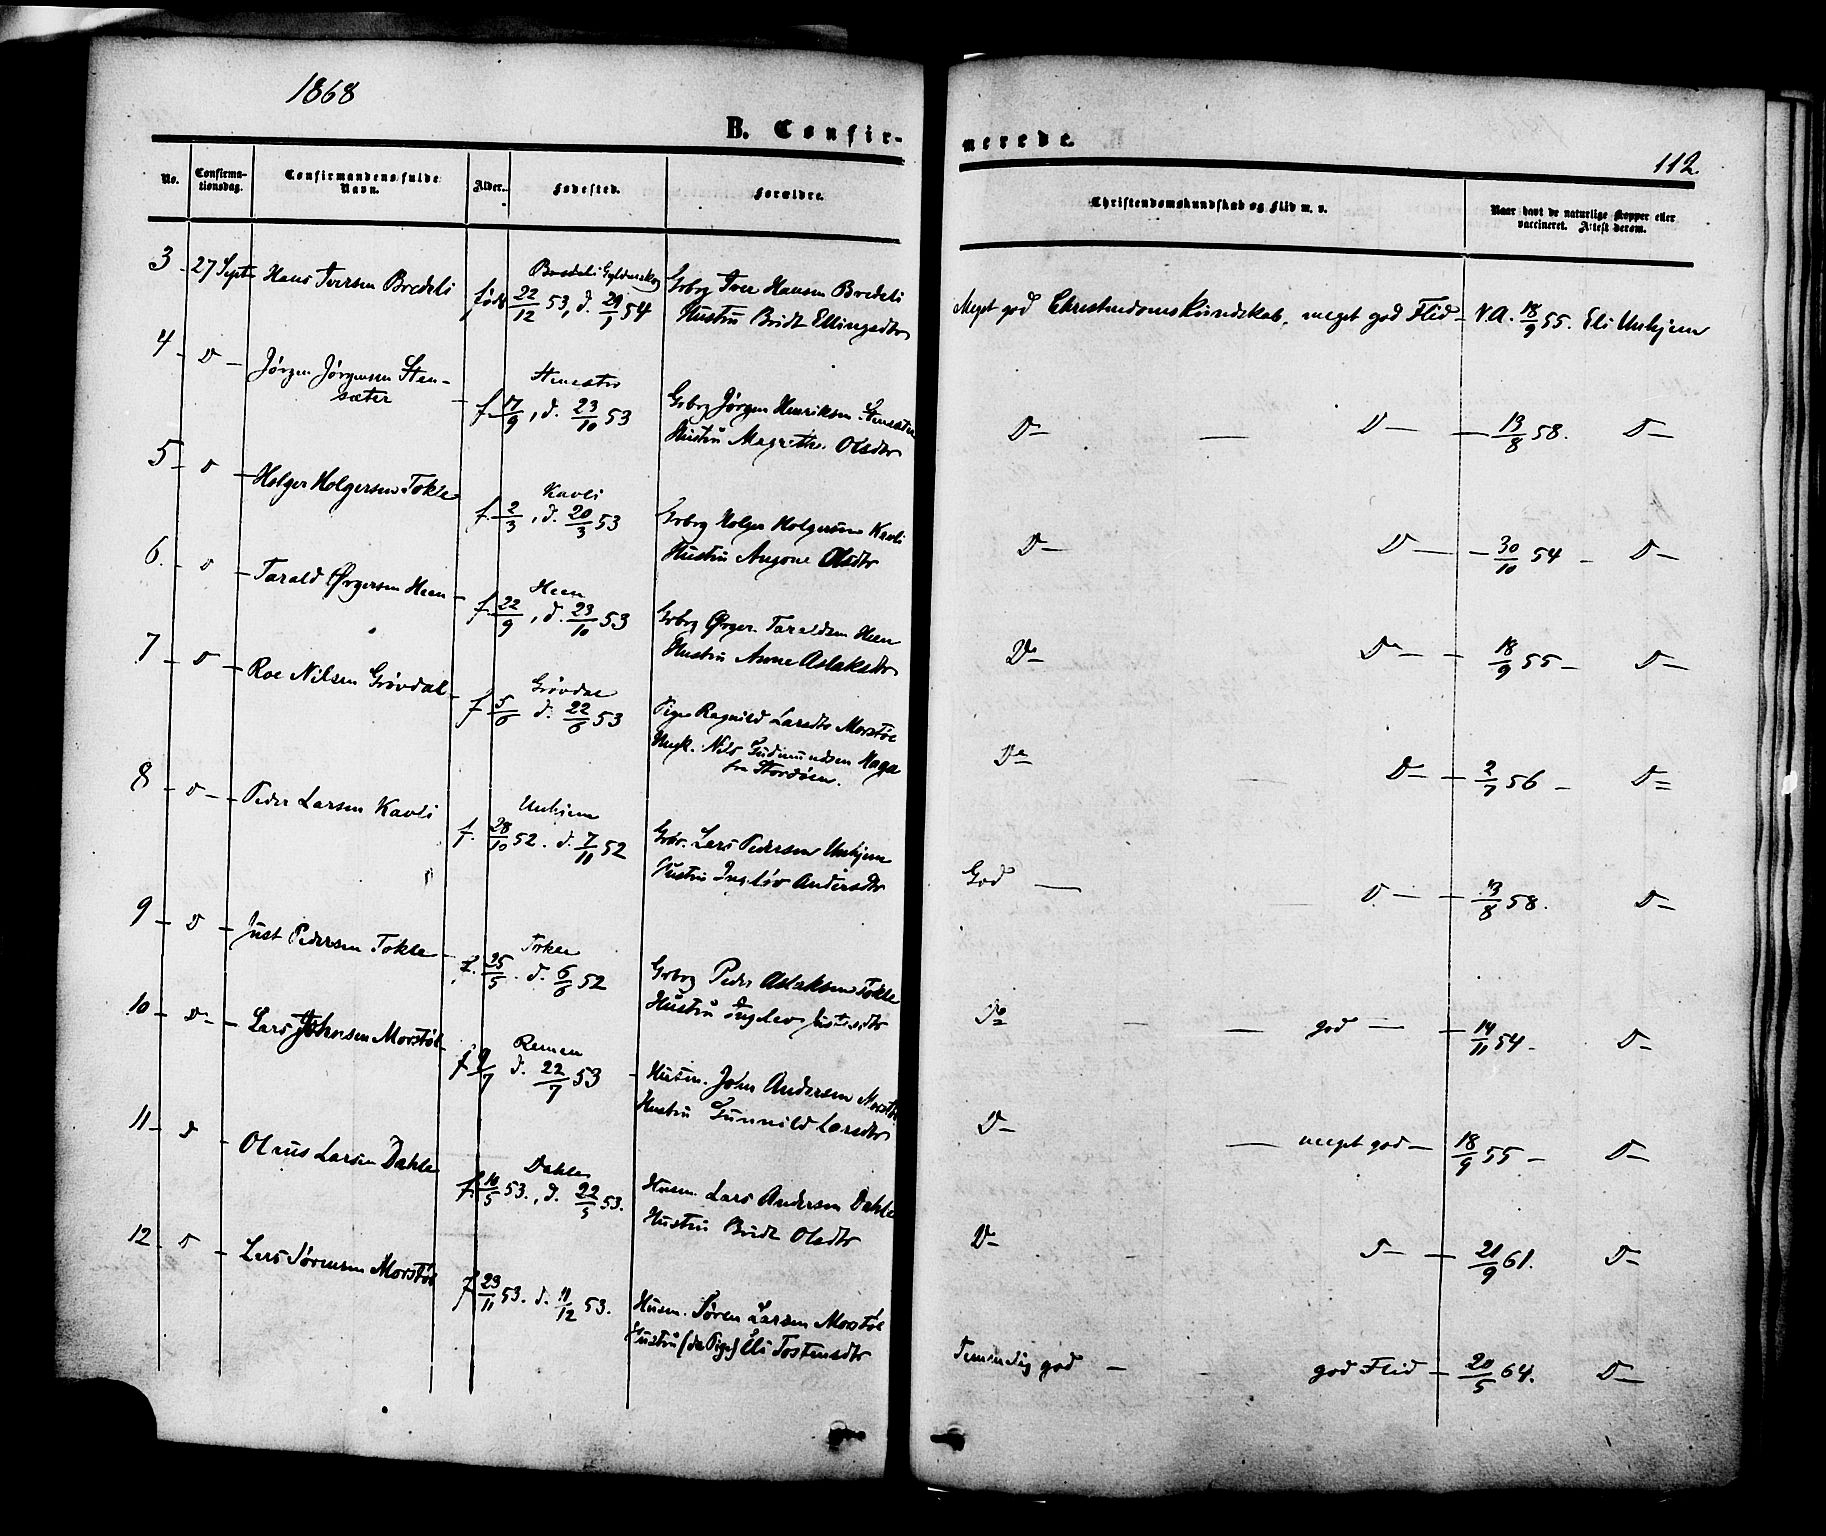 1868
B. Confir-
merede.
112.
No.
Confirma-
tionsdag.
Confirmandens fulde
Navn.
Alder.
Fødested.
Forældre.
Christendomskundskab og Flid m. v.
Naar havt de naturlige Kopper eller
vaccineret. Attest derom.
3 - 27 Sept - Hans Iversen Bredeli
født 22/12 53, d. 29/1 54
Gbrg Iver Hansen Bredeli
Hustru Bridt Ellingsdtr
Meget god Christendomskundskab, meget god Flid - V.A. 18/9 55. Eli Unhjem
4 - D - Jørgen Jørgensen Sten-
sæter
f. 17/9, d. 23/10 53
Gbrg Jørgen Henriksen Stensæter
Hustru Magrethe Olsdtr
D - — D - - 13/8 58. D -
5 - D - Holger Holgersen Tokle
Kavli
f. 2/3, d. 20/3 53
Gbrg Holger Holgersen Kavli
Hustru Olsdtr
D - D - - 30/10 54 - D -
6. - D - Tarald Ørgersen Heen -
Heen
f. 22/9, d. 23/10 53
Gbrg Ørger Taraldsen Heen
Hustru Anne Aslaksdtr
Do - Do - - 18/9 55 - D -
7 - D - Roe Nilsen Grøvdal -
Grøvdal
f. 5/6 d. 22/6 53
Pige Ragnild Larsdtr Morstøl
Ungk. Nils Gudmundsen Haga
fra Stordøen.
Do D - - 2/7 56 - D -
8 - D - Peder Larsen Kavli
Unhjem
f. 28/10 52. d. 7/11 52
Gbr. Lars Pedersen Unhjem
Hustru Ingløv Andersdtr
God — D. - - 13/8 58. D -
9 - D - Just Pedersen Tokle -
Tokle
f. 25/5. d. 6/6 52
Gbrg Peder Aslaksen Tokle
Hustru Ingløv Justsdtr
Do - — god - - 14/11 54 - D -
10 - D - Lars Johnsen Morstøl -
Remen
f. 9/7 d. 22/7 53 -
Husm. John Andersen Morstøl
Hustru Gunnild Larsdtr
D - — meget god - 18/9 55 - D -
11 - D - Olaus Larsen Dahle
Dahle
f. 10/5 53., d. 22/5 53.
Husm. Lars Andersen Dahle
Hustru Bridt Olsdtr
D - - D - - 21/9 61. D -
12 - D - Lars Sørensen Morstøl
f. 23/11 53. d. 11/12 53.
Husm. Søren Larsen Morstøl
Hustru (da Pige) Eli Tostensdtr
Temmelig god - god Flid - 20/5 64. D -